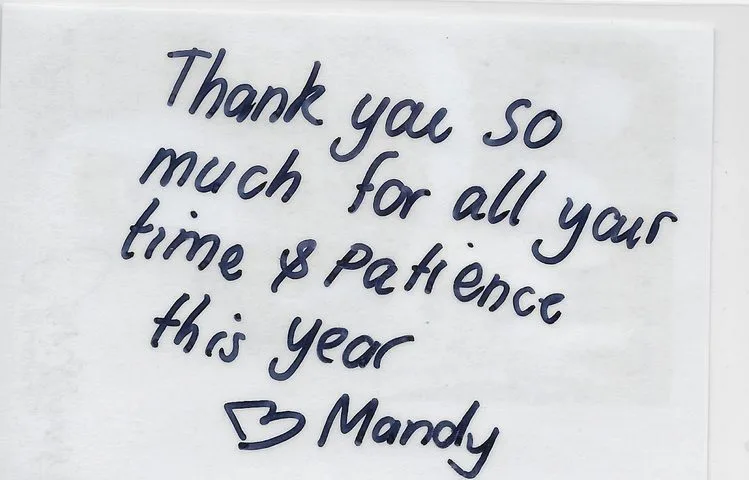 Thank you so
much for all your
time & Patience
this year
♡ Mandy